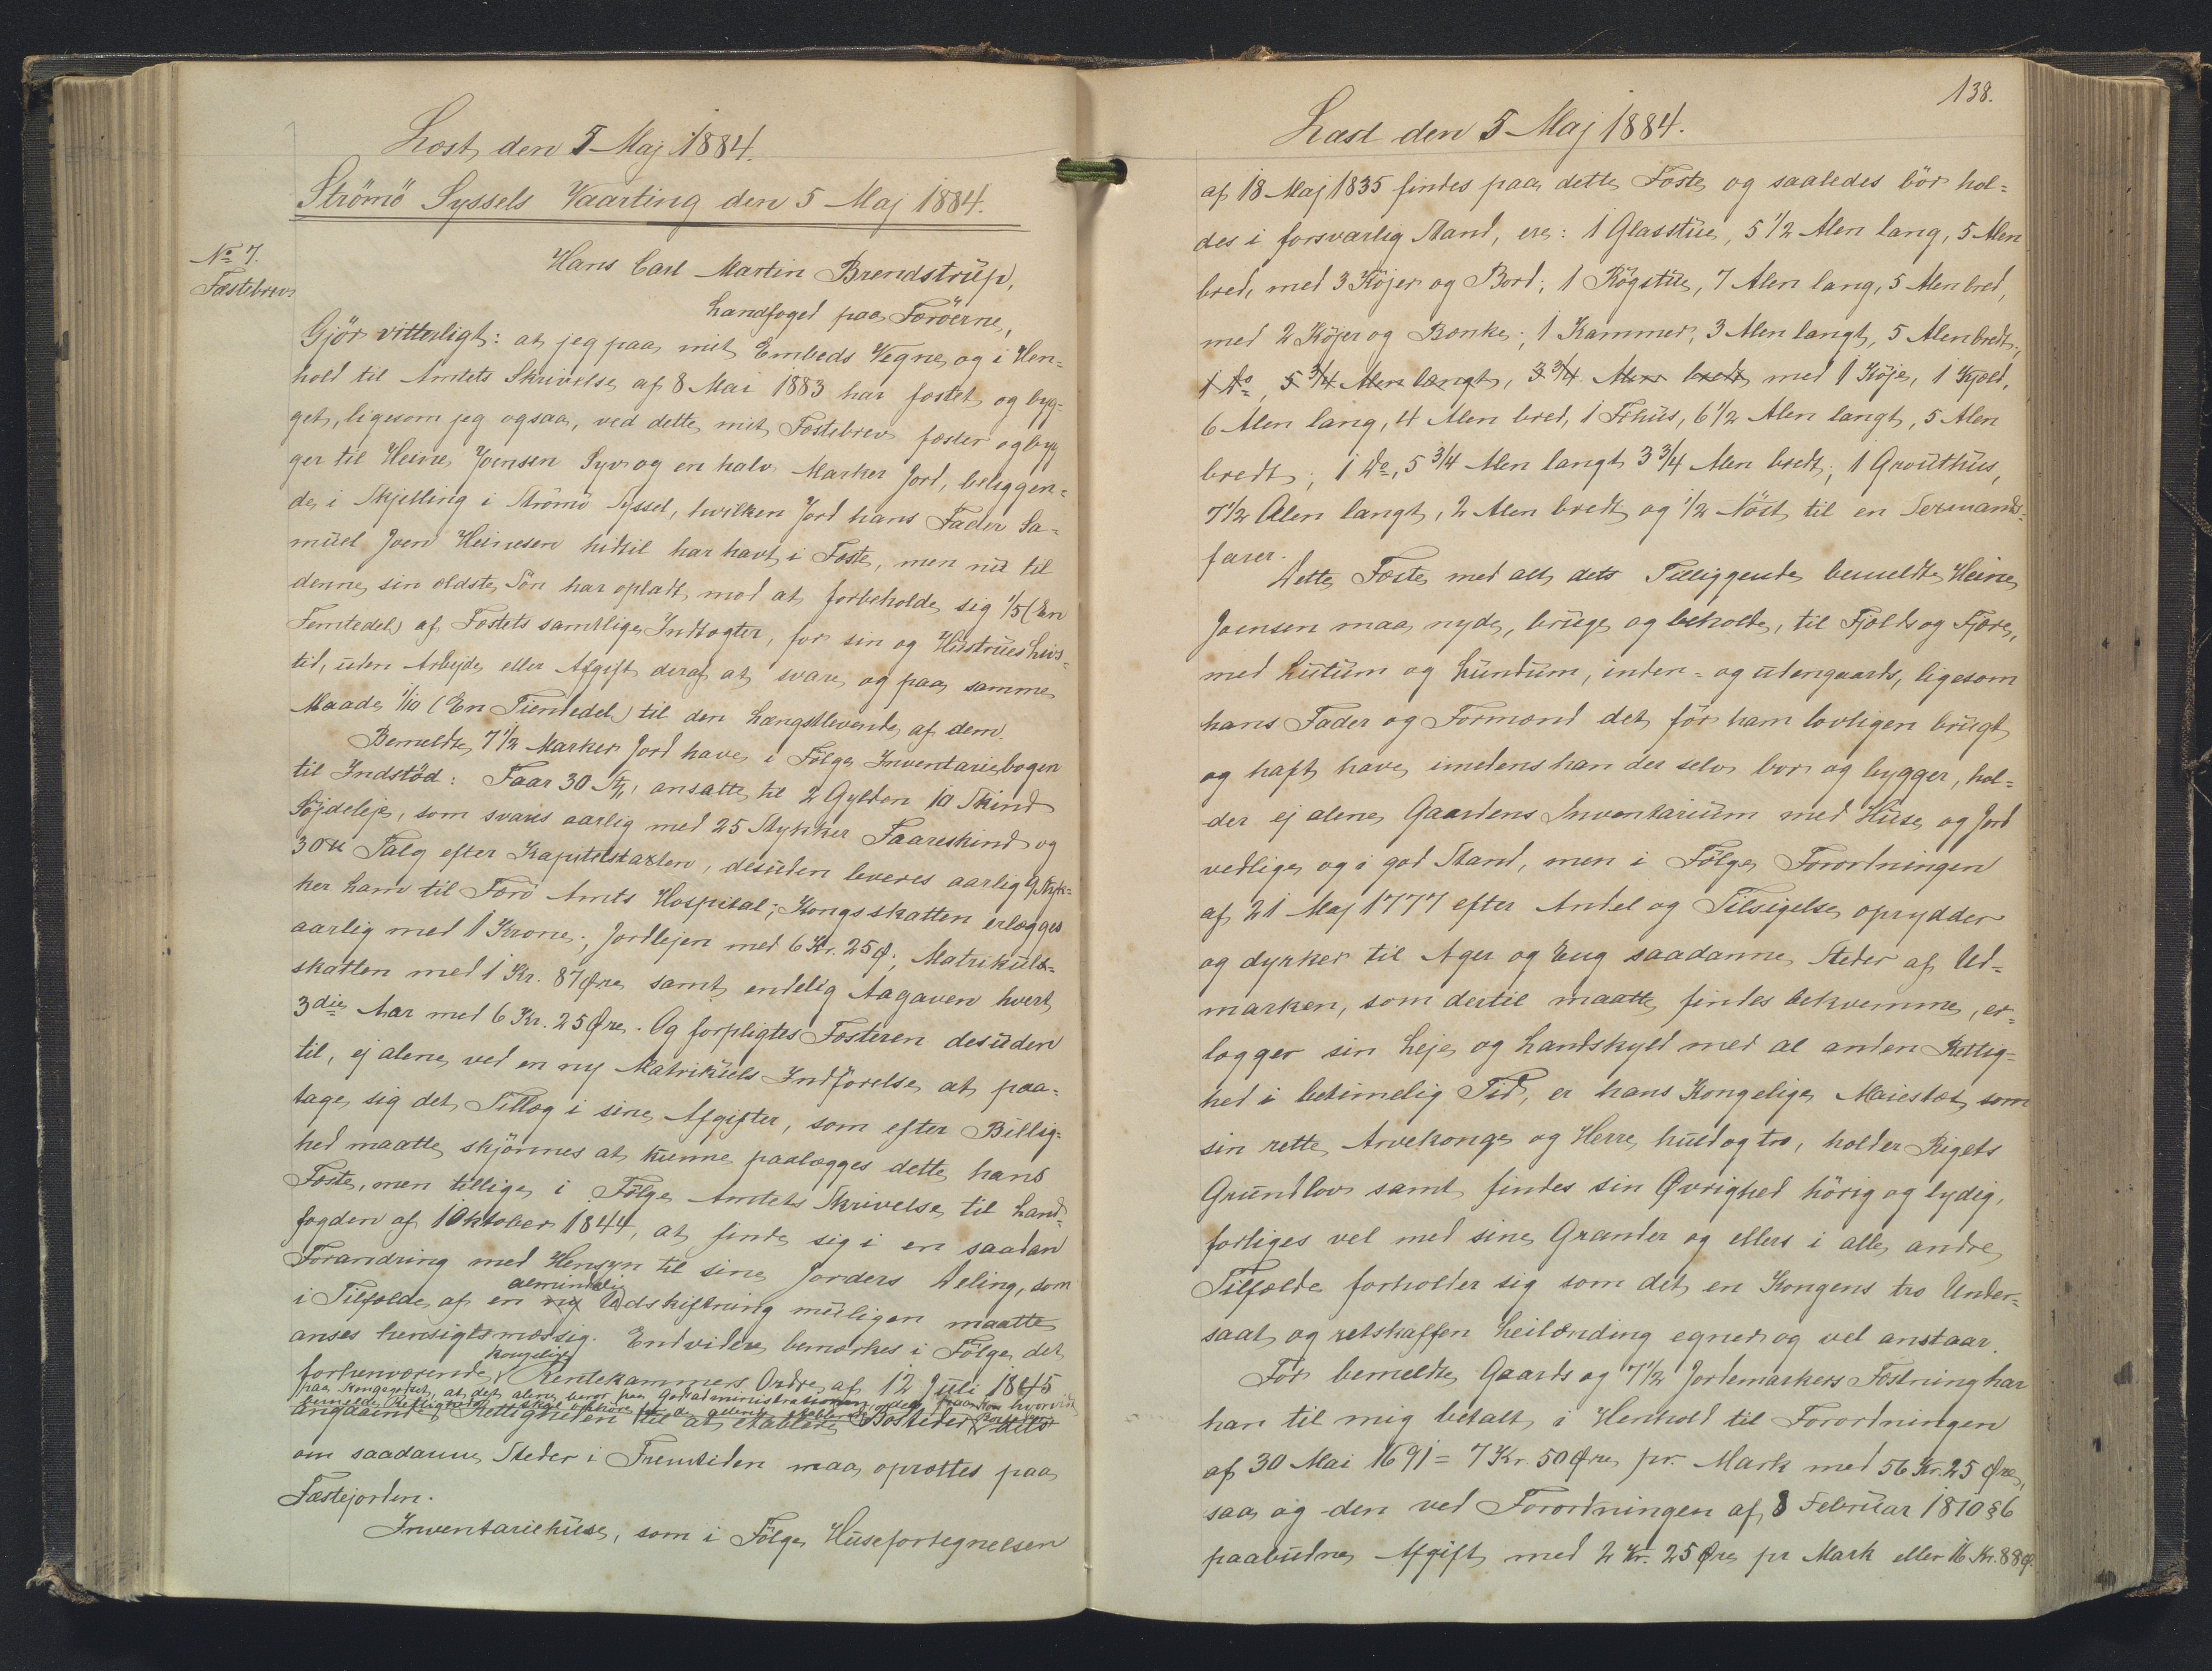 Læst den 5 Maj 1884.
Strömö Syssels Vaarting den 5 Maj 1884.
No 7.
Fæstebrev
Hans Carl Martin Brendstrüp,
Landfoged paa Færöerne,
Gjör vitterligt: at jeg paa mit Embeds Vegne og i Hen-
hold til Amtets Skrivelse af 8 Mai 1883 har fæstet og byg-
get, ligesom jeg ogsaa, ved dette mit Fæstebrev fæster og byg
ger til Heine Joensen Syv og en halv Marker Jord, beliggen-
de i Skjelling i Strömö Syssel, hvilken Jord hans Fader Sa-
müel Joen Heinesen hidtil har havt i Fæste, men nü til
denne sin ældste Sön har opladt, mod at forbeholde sig 1/5 (En
Femtedel) af Fæstets samtlige Indtægter, for sin og Hüstrües Livs-
tid, üden Arbejde eller Afgift deraf at svare og paa samme
Maade 1/10 (En Tiendedel) til den Længstlevende af dem.
Bemeldte 7 1/2 Marker Jord have i Fölge Inventariebogen
til Indstöd: Faar 30 St, ansatte til 2 Gylden 10 Skind
Söjdeleje, som svares aarlig med 25 Stykker Faareskind og
30 ℔ Talg efter Kapitelstaxten, desüden leveres aarlig 9 Styk-
ker Lam til Færö Amts Hospital; Kongsskatten erlægges
aarlig med 1 Krone; Jordlejen med 6 Kr. 25 Ø; Matriküls-
skatten med 1 Kr. 87 Øre samt endelig Aagaven hvert
3die Aar med 6 Kr. 25 Øre. Og forpligtes Fæsteren desüden
til, ej alene ved en ny Matriküls Indförelse at paa-
tage sig det Tillæg i sine Afgifter, som efter Billig-
hed maatte skjönnes at künne paalægges dette hans
Fæste, men tillige i Fölge Amtets Skrivelse til Land-
fogden af 1 Oktober 1844, at finde sig i en saadan
Forandring med Hensyn til sine Jorders Deling, som
almindelig
i Tilfælde af en ny Udskiftning müligen maatte
anses hensigtsmæssig. Endvidere bemærkes i Fölge det
kongelige
forhenværende Rentekammers Ordre af 12 Jüli 1845
paa Kongegodset, at det alene beror paa Godsadministrationen
angaaende Rettigheden til at etablere Bosteder
om saadanne Steder i Fremtiden maa oprettes paa
Fæstejorden.
Inventariehüse, som i Fölge Hüsefortegnelsen
138.
Læst den 5 Maj 1884.
af 18 Maj 1835 findes paa dette Fæste og saaledes bör hol-
des i forsvarlig Stand, ere: 1 Glasstüe, 5 1/2 Alen lang, 5 Alen
bred, med 3 Köjer og Bord; 1 Rögstüe, 7 Alen lang, 5 Alen bred,
med 2 Köjer og Bænke; 1 Kammer, 3 Alen langt, 5 Alen bredt;
1 Do, 5 3/4 Alen langt, 3 3/4 Alen bredt med 1 Köje, 1 Kjæld,
6 Alen lang, 4 Alen bred, 1 Fæhüs, 6 1/2 Alen langt, 5 Alen
bredt; 1 Do, 5 3/4 Alen langt 3 3/4 Alen bredt; 1 Groüthüs,
7 1/2 Alen langt, 2 Alen bredt og 1/2 Nöst til en Sexmands-
farer.
Dette Fæste med alt dets Tilliggende bemeldte Heine
Joensen maa nyde, brüge og beholde, til Fjælds og Fjære,
med Lütüm og Lündüm, inden- og üdengaards, ligesom
hans Fader og Formænd det för ham lovligen brügt
og haft have imedens han der selv bor og bygger, hol-
der ej alene Gaardens Inventariüm med Hüse og Jord
vedlige og i god Stand, men i Fölge Forordningen
af 21 Maj 1777 efter Andel og Tilsigelse oprydder
og dyrker til Ager og Eng saadanne Steder af Ud-
marken, som dertil maatte findes bekvemme, er-
lægger sin Leje og Landskyld med al anden Rettig-
hed i betimelig Tid, er hans Kongelige Maiestæt som
sin rette Arvekonge og Herre hüld og tro, holder Rigets
Gründlov samt findes sin Øvrighed hörig og lydig,
forliges vel med sine Grander og ellers i alle andre
Tilfælde forholder sig som det en Kongens tro Under-
saat og retskaffen Leilænding egner og vel anstaar.
For bemeldte Gaards og 7 1/2 Jordemarkers Fæstning har
han til mig betalt i Henhold til Forordningen
af 30 Mai 1691 = 7 Kr. 50 Øre pr. Mark med 56 Kr. 25 Øre,
saa og den ved Forordningen af 8 Februar 1810 § 6
paabüdne Afgift med 2 Kr. 25 Øre pr Mark eller 16 Kr. 88 Ø.